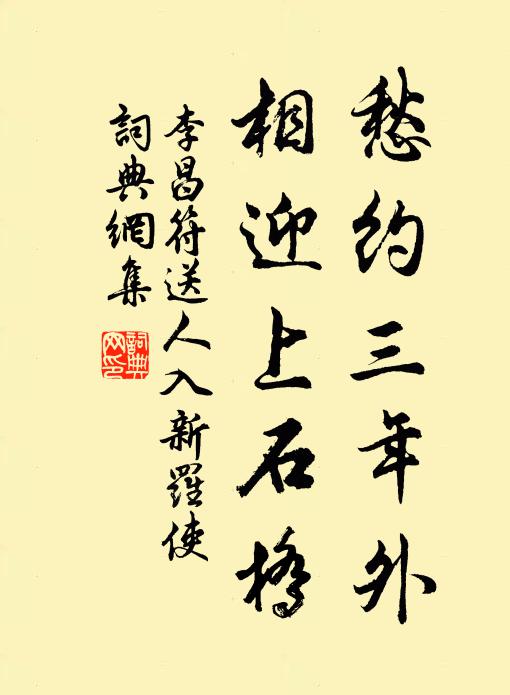 愁約三年外
相迎上石橋
李昌符送人入新羅使
詞典網集
詞典網印